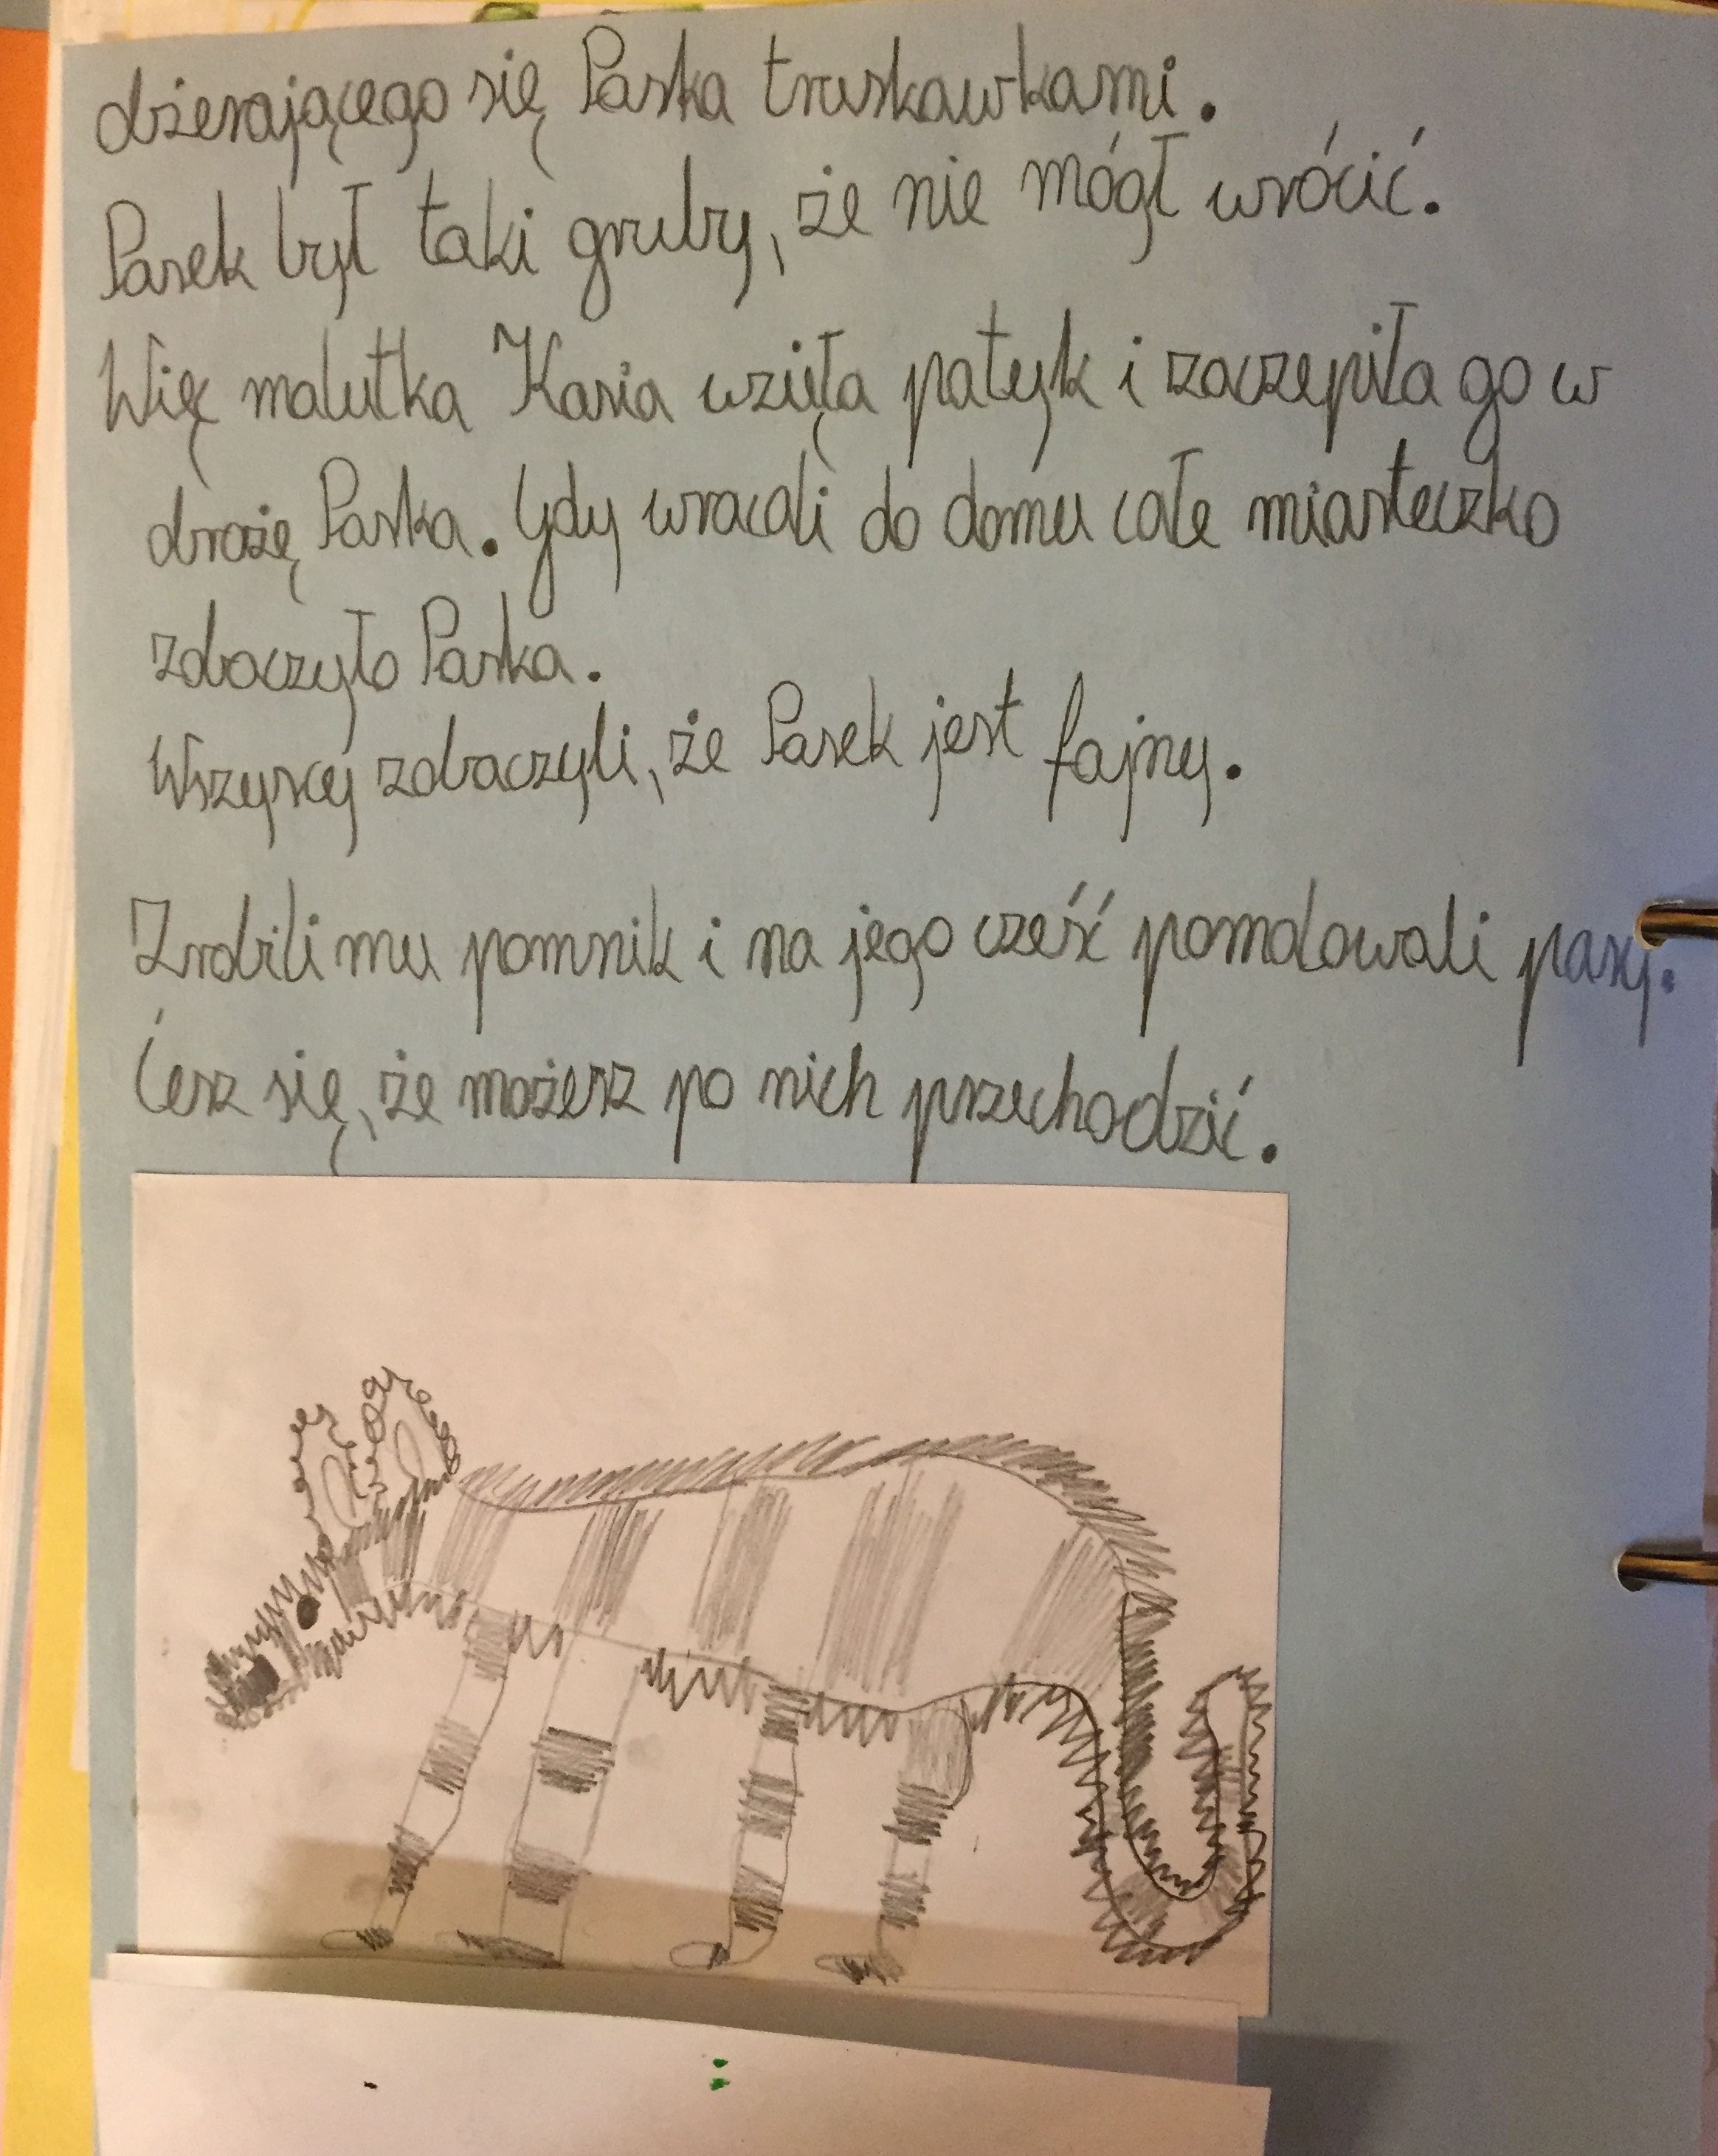 dżerającego się Paska truskawkami.
Pasek był taki gruby, że nie mógł wrócić.
Wię malutka Kasia wzięła patyk i zaczepiła go w
drożę Paska. Gdy wracali do domu całe miasteczko
zobaczyło Paska.
Wszyscy zobaczyli, że Pasek jest fajny.
Zrobili mu pomnik i na jego cześć pomalowali pasy.
Ćesz się, że możesz po nich przechodzić.